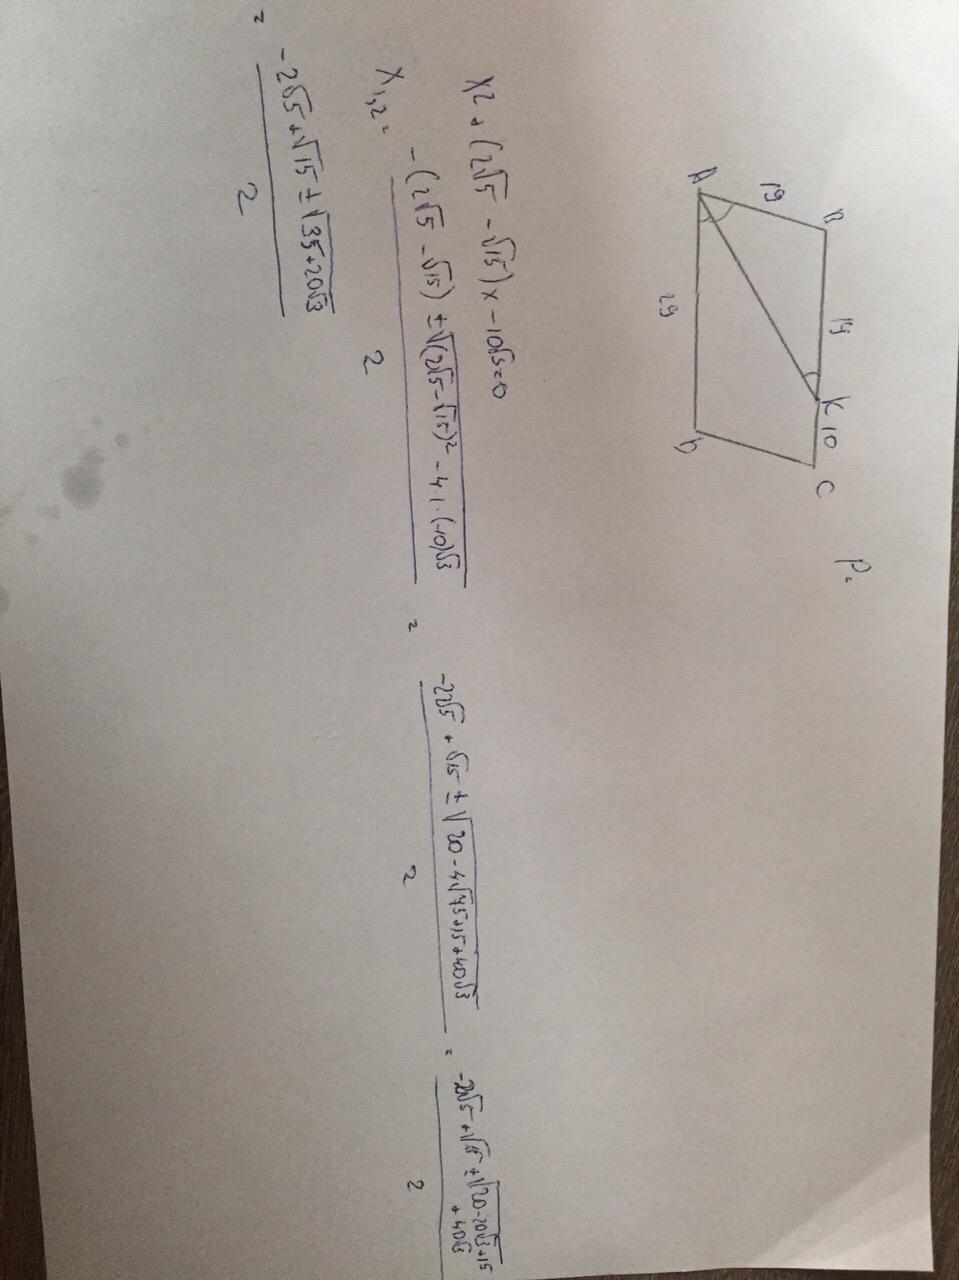 B 19 K 10 C
P=
19
A 29 D
x2 + (2√5 - √15)x - 10√3 = 0
x1,2 = -(2√5 - √15) ± √(2√5-√15)² - 4·1·(-10)√3 / 2 = -2√5 + √15 ± √20 - 4√75+15+40√3 / 2 = -2√5 + √15 ± √20-20√3+15 + 40√3 / 2
= -2√5 + √15 ± √35+20√3 / 2